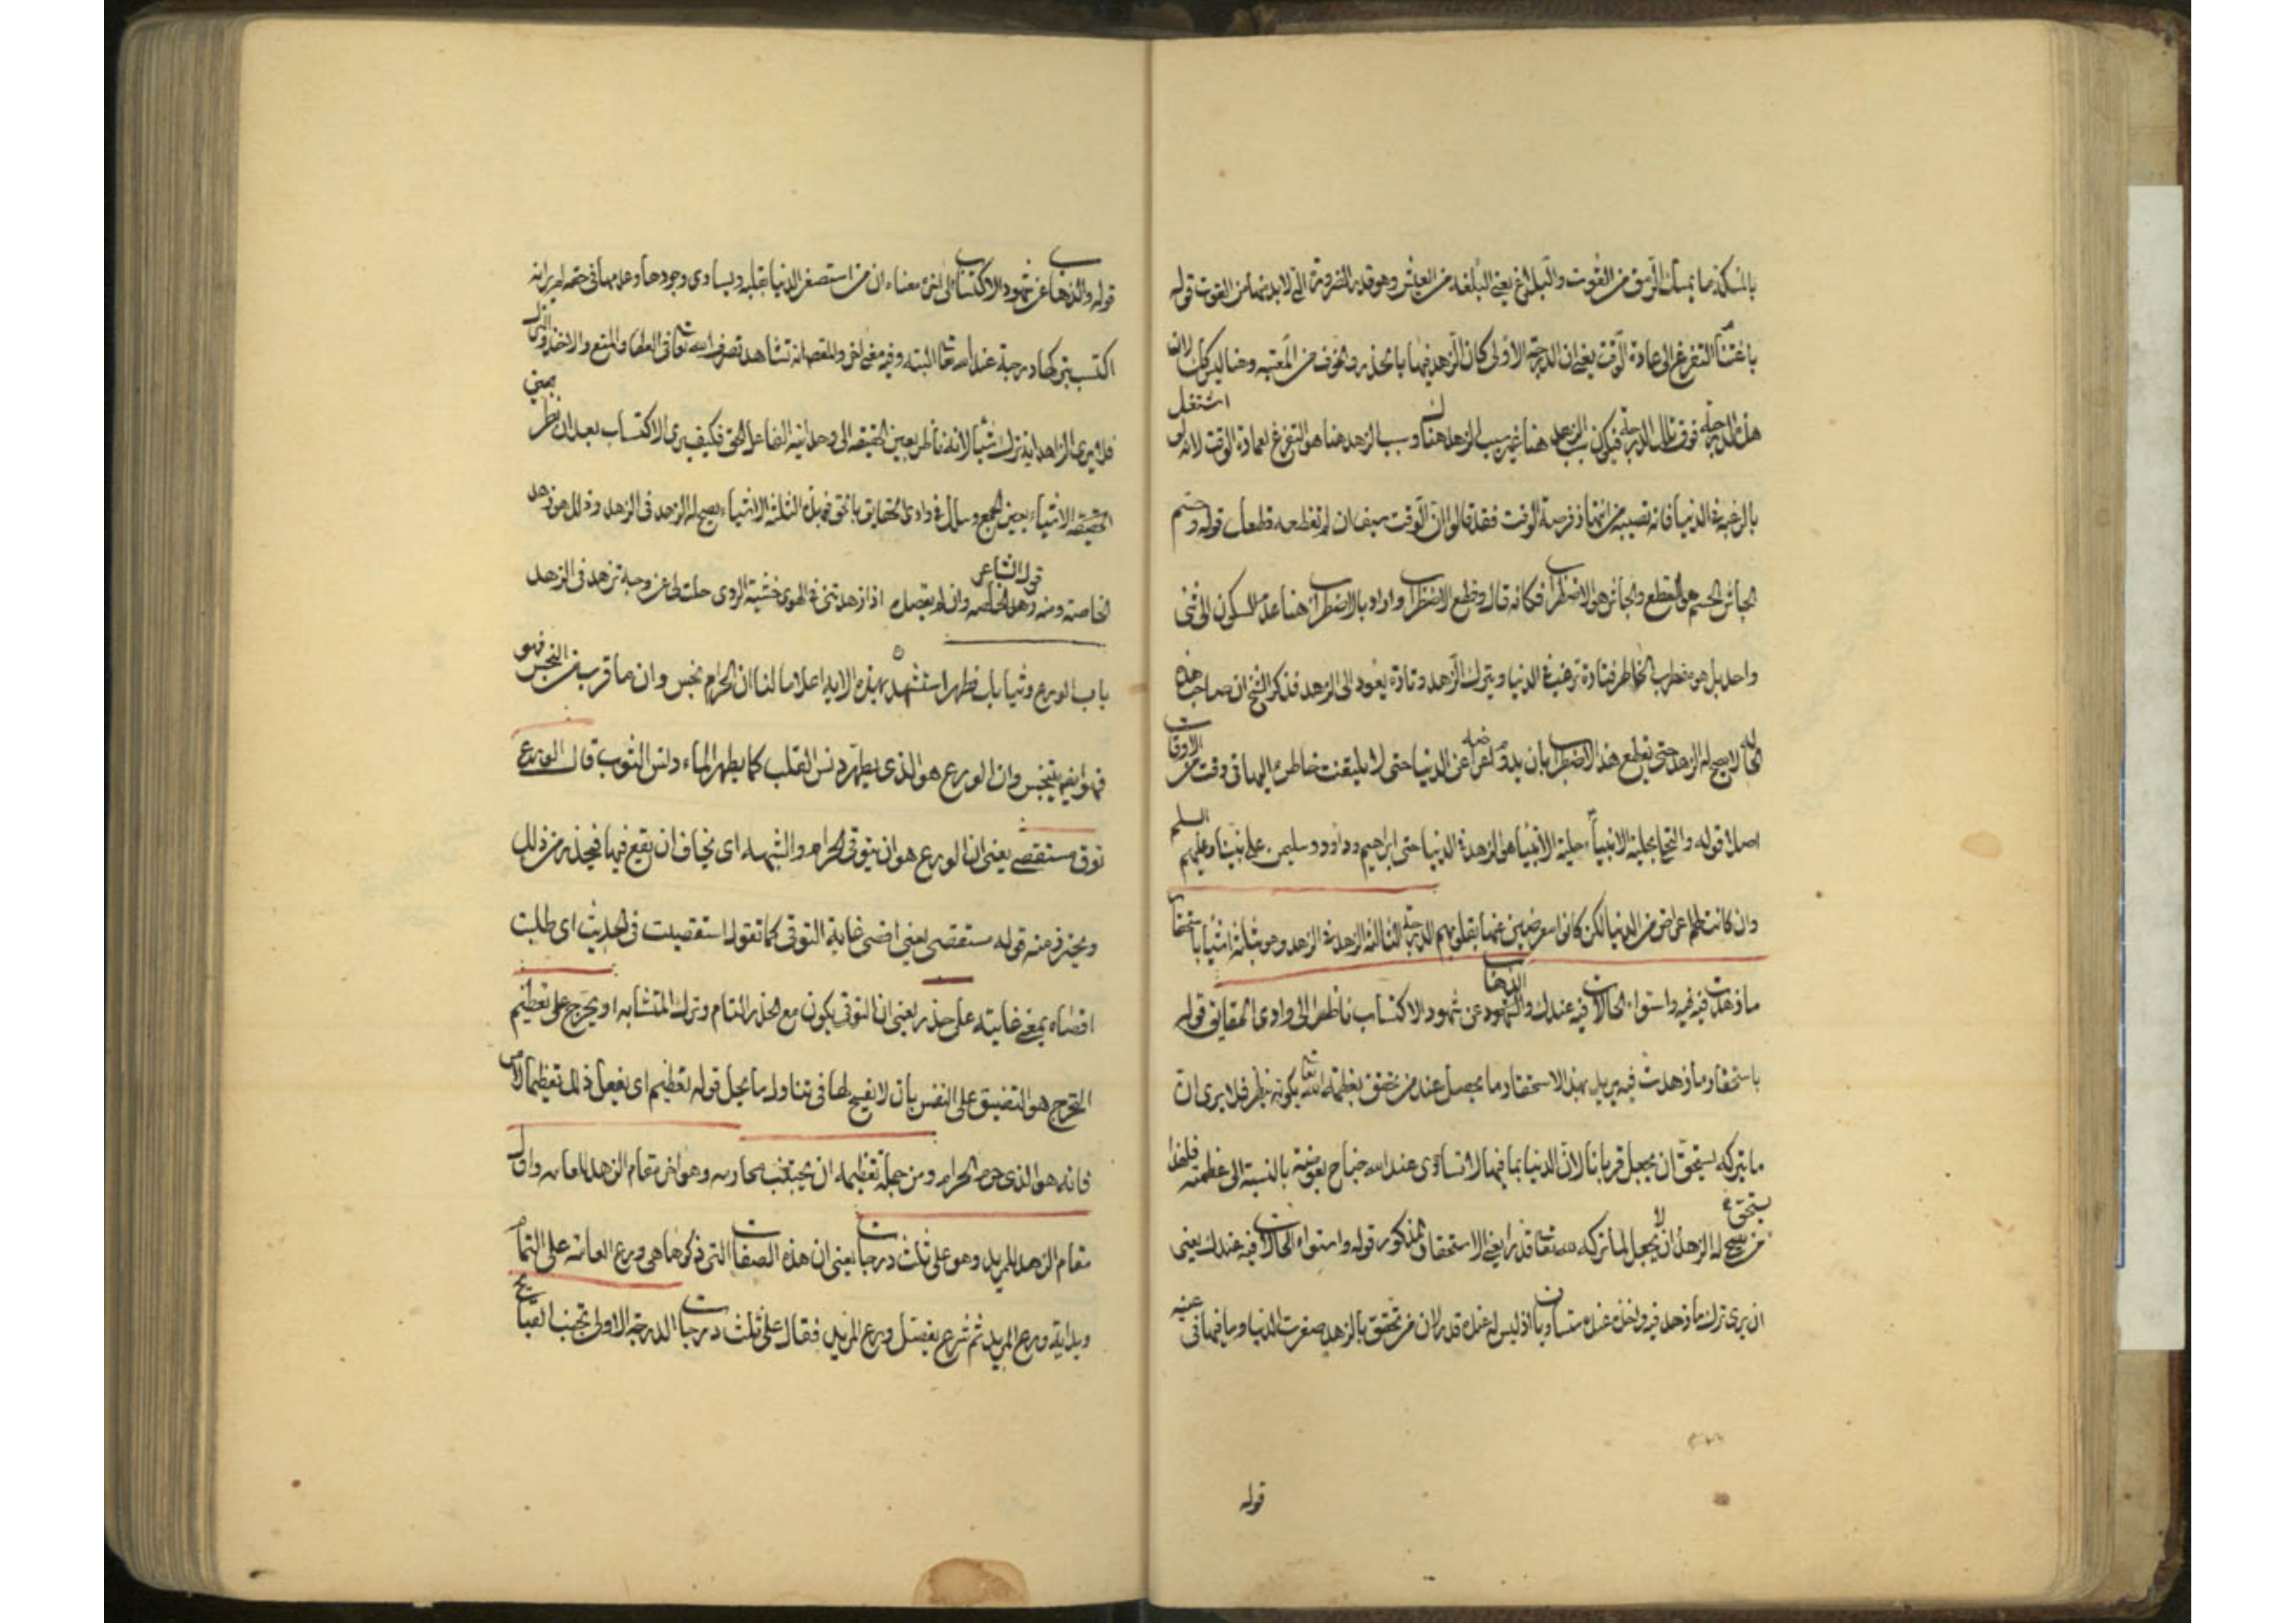 بالمسكة ما يمسك الرمق من القوت والبلاغ يعنى البلغه من العيش وهو قدر الضرورة التى لابد منها من القوت قوله
باغتنام التفرغ الى عمارة الوقت يعنى ان الدرجة الاولى كان الزهد فيها بالحذر والخوف من المعتبه وهنا ليس كذلك لان
هذه الدرجة فوق تلك الدرجة فيكون سبب الزهد هنا غير سبب الزهد هناك وسبب الزهد هنا هو التفرغ لعمارة الوقت لانه لو اشتغل
بالرغبة فى الدنيا فاته نصيبه من انتهاز فرصة الوقت فقد قالوا ان الوقت سيف ان لم تقطعه قطعك قوله وحسم
الجاش الحسم هو القطع والجاش هو الاضطراب فكانه قال وقطع الاضطراب واراد بالاضطراب هنا عدم السكون الى شئ
واحد بل هو مضطرب الخاطر فتارة ترغب فى الدنيا ويترك الزهد وتارة يعود الى الزهد فذكر الشيخ ان صاحب هذه
الحال لا يصح له الزهد حتى يقطع هذا الاضطراب بان يدوم اعراضه عن الدنيا حتى لا يلتفت خاطره اليها فى وقت من الاوقات
اصلا قوله والتحلى بحلية الانبياء حلية الانبياء هى الزهد فى الدنيا حتى ابراهيم وداود وسليمن على نبينا وعليهم السلم
وان كانت لهم اعراض من الدنيا لكن كانوا معرضين عنها بقلوبهم الدرجة الثالثة الزهد فى الزهد وهو بثلثة اشياء باستحقار
ما زهدت فيه واستواء الحالات فيه عندك والذهاب عن شهود الاكتساب ناظرا الى وادى الحقايق قوله
باستحقار ما زهدت فيه يريد بهذا الاستحقار ما يحصل عند من تحقق بعظمة الله تعالى فلا يرى ان
ما يتركه يستحق ان يجعل قربانا لان الدنيا بما فيها لا تساوى عند الله جناح بعوضة بالنسبة الى عظمته فلهذا
من يصح له الزهد لا يجعل لما تركه لله تعالى قدرا يعنى الاستحقار المذكور قوله واستواء الحالات فيه عندك يعنى
ان يرى ترك ما زهد فيه واخذه عنده متساويان اذ ليس له عنده قدر لان من تحقق بالزهد صغرت الدنيا وما فيها فى عينه
قوله
قوله والذهاب عن شهود الاكتساب الى اخره معناه ان من استصغر الدنيا بقلبه ويساوى وجودها وعدمها فى حقه لم ير انه
اكتسب بتركها درجة عند الله تعالى البتة وفيه معنى اخر والمقصد انه شاهد تصرف الله تعالى فى العطاء والمنع والاخذ والترك
فلا يرى الزاهد انه ترك شيئا لانه ناظر بعين الحقيقة الى وحدانية الفاعل الحق فكيف يرى الاكتساب بعد ان نظر بعين
الحقيقة الاشياء بعين الجمع وسلك فى وادى الحقايق بالحق فبهذه الثلثة الاشياء يصح له الزهد فى الزهد وذلك هو زهد
الخاصة ومنه زهد الخاصة وان لم يقصد قول الشاعر اذا زهدتنى فى الهوى خشية الردى جلت لى عن وجه تزهد فى الزهد
باب الورع وثيابك فطهر استشهد بهذه الاية اعلاما لنا ان الحرام نجس وان ما قرب من النجس فهو
فهو ايضا يتنجس وان الورع هو الذى يطهر دنس القلب كما يطهر الماء دنس الثوب قال الورع
توق مستقصى يعنى ان الورع هو ان يتوقى الحرام والشبهه اى يخاف ان يقع فيها فيحذر من ذلك
ويحترز منه قوله مستقصى يعنى اقصى غاية التوقى كما تقول استقصيت فى الحديث اى طلبت
اقصاه بمعنى غايته على حذر يعنى ان التوقى يكون مع الحذر التام وترك المتشابه او تحرج على تعظيم
التحرج هو التضييق على النفس بان لا يفسح لها فى تناول ما يحل قوله تعظيم اى يفعل ذلك تعظيما للامر
فانه هو الذى حرم الحرام ومن جملة تعظيمه ان يجتنب محارمه وهو اخر مقام الزهد للعامه واول
مقام الزهد للمريد وهو على ثلث درجات يعنى ان هذه الصفات التى ذكرها هى ورع العامه على التمام
وبداية ورع المريد ثم شرع يفصل ورع المريد فقال على ثلث درجات الدرجة الاولى تجنب القبايح